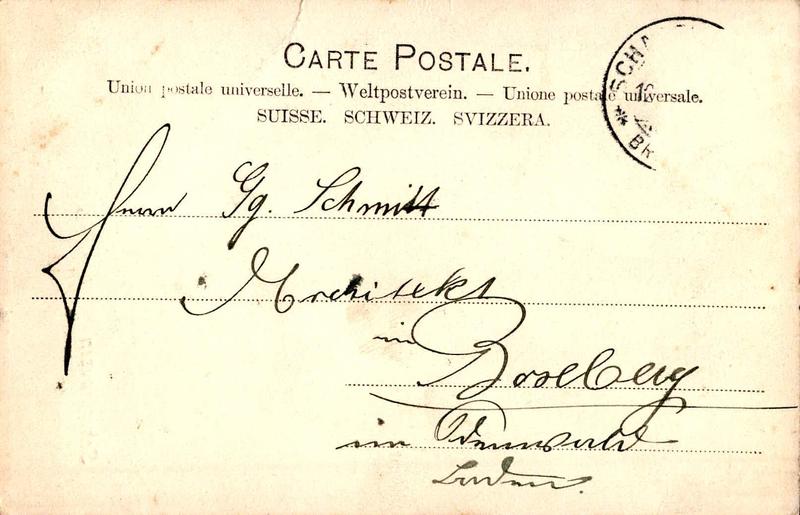 CARTE POSTALE.
Union postale universelle. — Weltpostverein. — Unione postale universale.
SUISSE. SCHWEIZ. SVIZZERA.
Herrn Gg. Schmitt
Architekt
in Boxberg
im Odenwald
Baden.
SCHA
BR